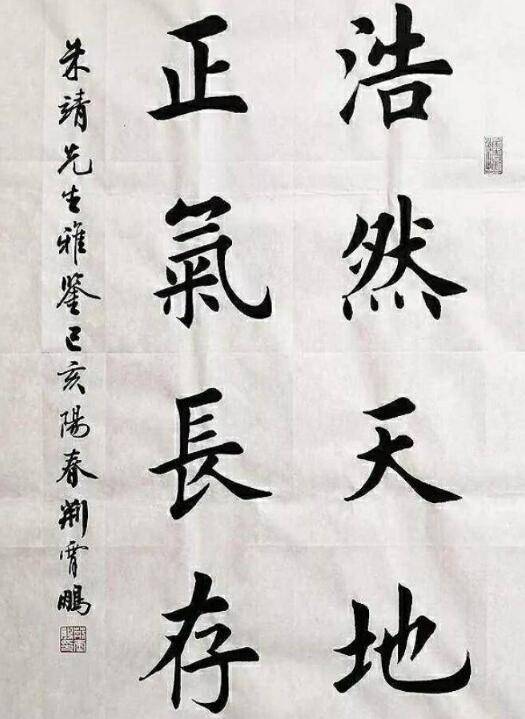 浩然天地
正氣長存
朱靖先生雅鑒己亥陽春荆霄鵬